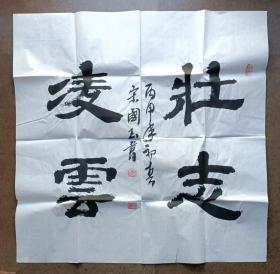 壮志
凌雲
丙申年初春
宋國玉書